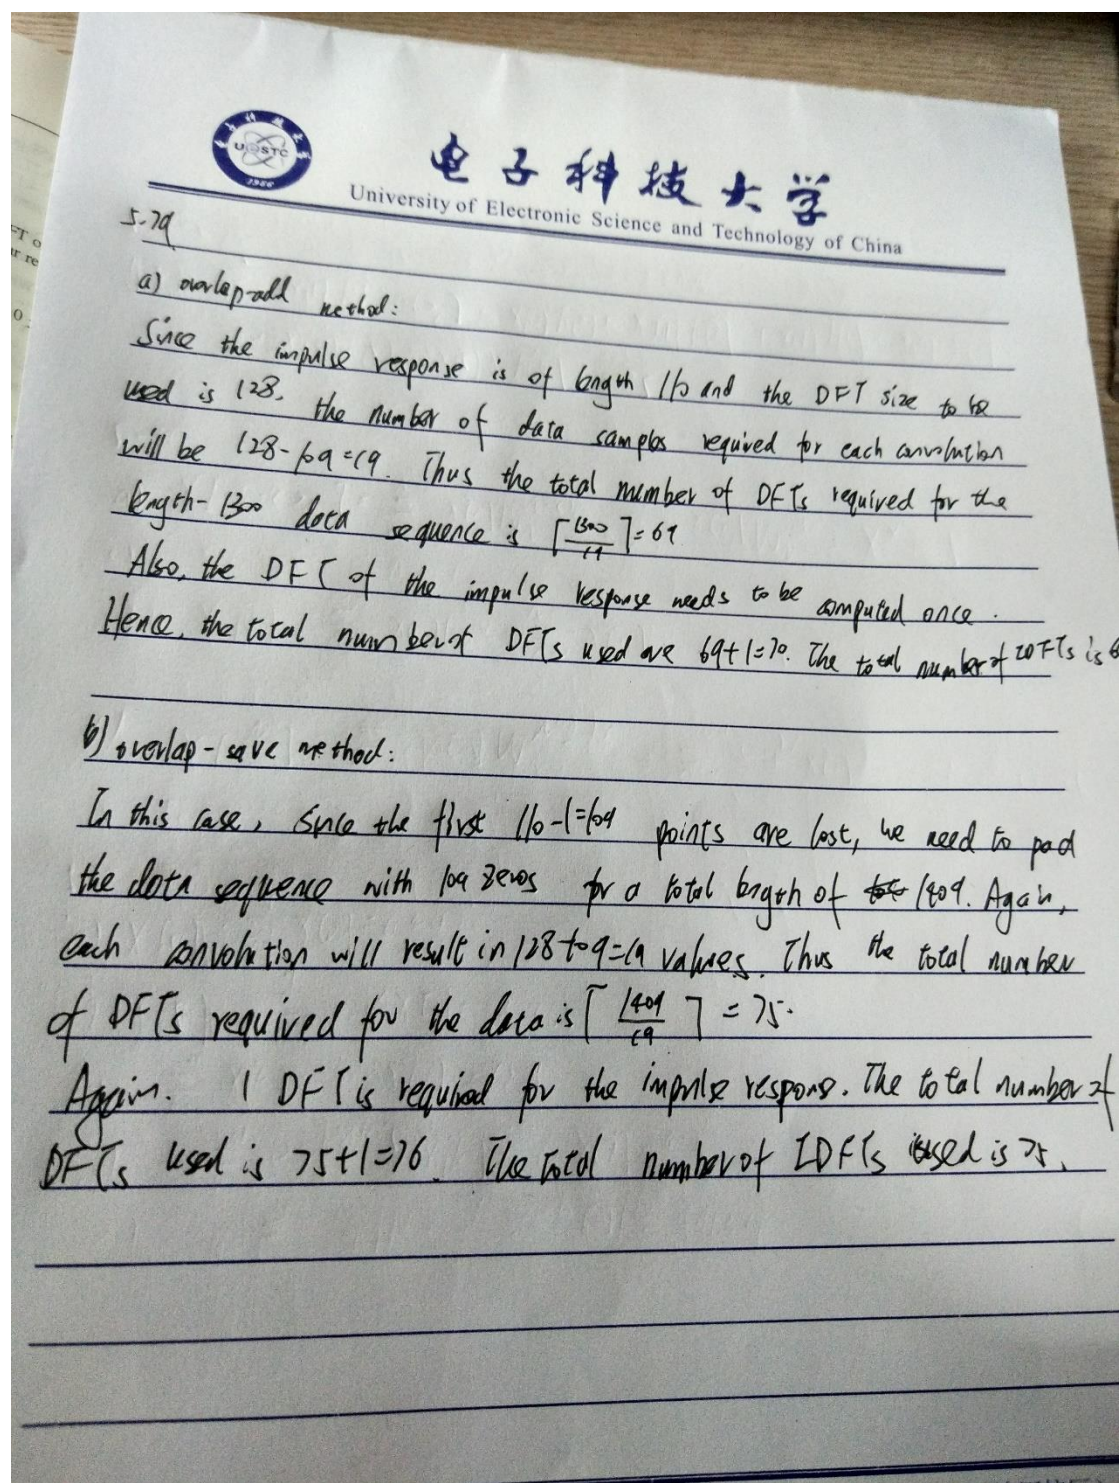 UESTC
1956
电子科技大学
University of Electronic Science and Technology of China
5.79
a) overlap-add method:
Since the impulse response is of length 110 and the DFT size to be
used is 128, the number of data samples required for each convolution
will be 128-109=19. Thus the total number of DFTs required for the
length-1300 data sequence is ⌈1300/19⌉=69
Also, the DFT of the impulse response needs to be computed once.
Hence, the total number of DFTs used are 69+1=70. The total number of IDFTs is 6
b) overlap-save method:
In this case, since the first 110-1=109 points are lost, we need to pad
the data sequence with 109 zeros for a total length of 1409. Again,
each convolution will result in 128-109=19 values. Thus the total number
of DFTs required for the data is ⌈1409/19⌉ = 75.
Again. 1 DFT is required for the impulse response. The total number of
DFTs used is 75+1=76. The total number of IDFTs used is 75.